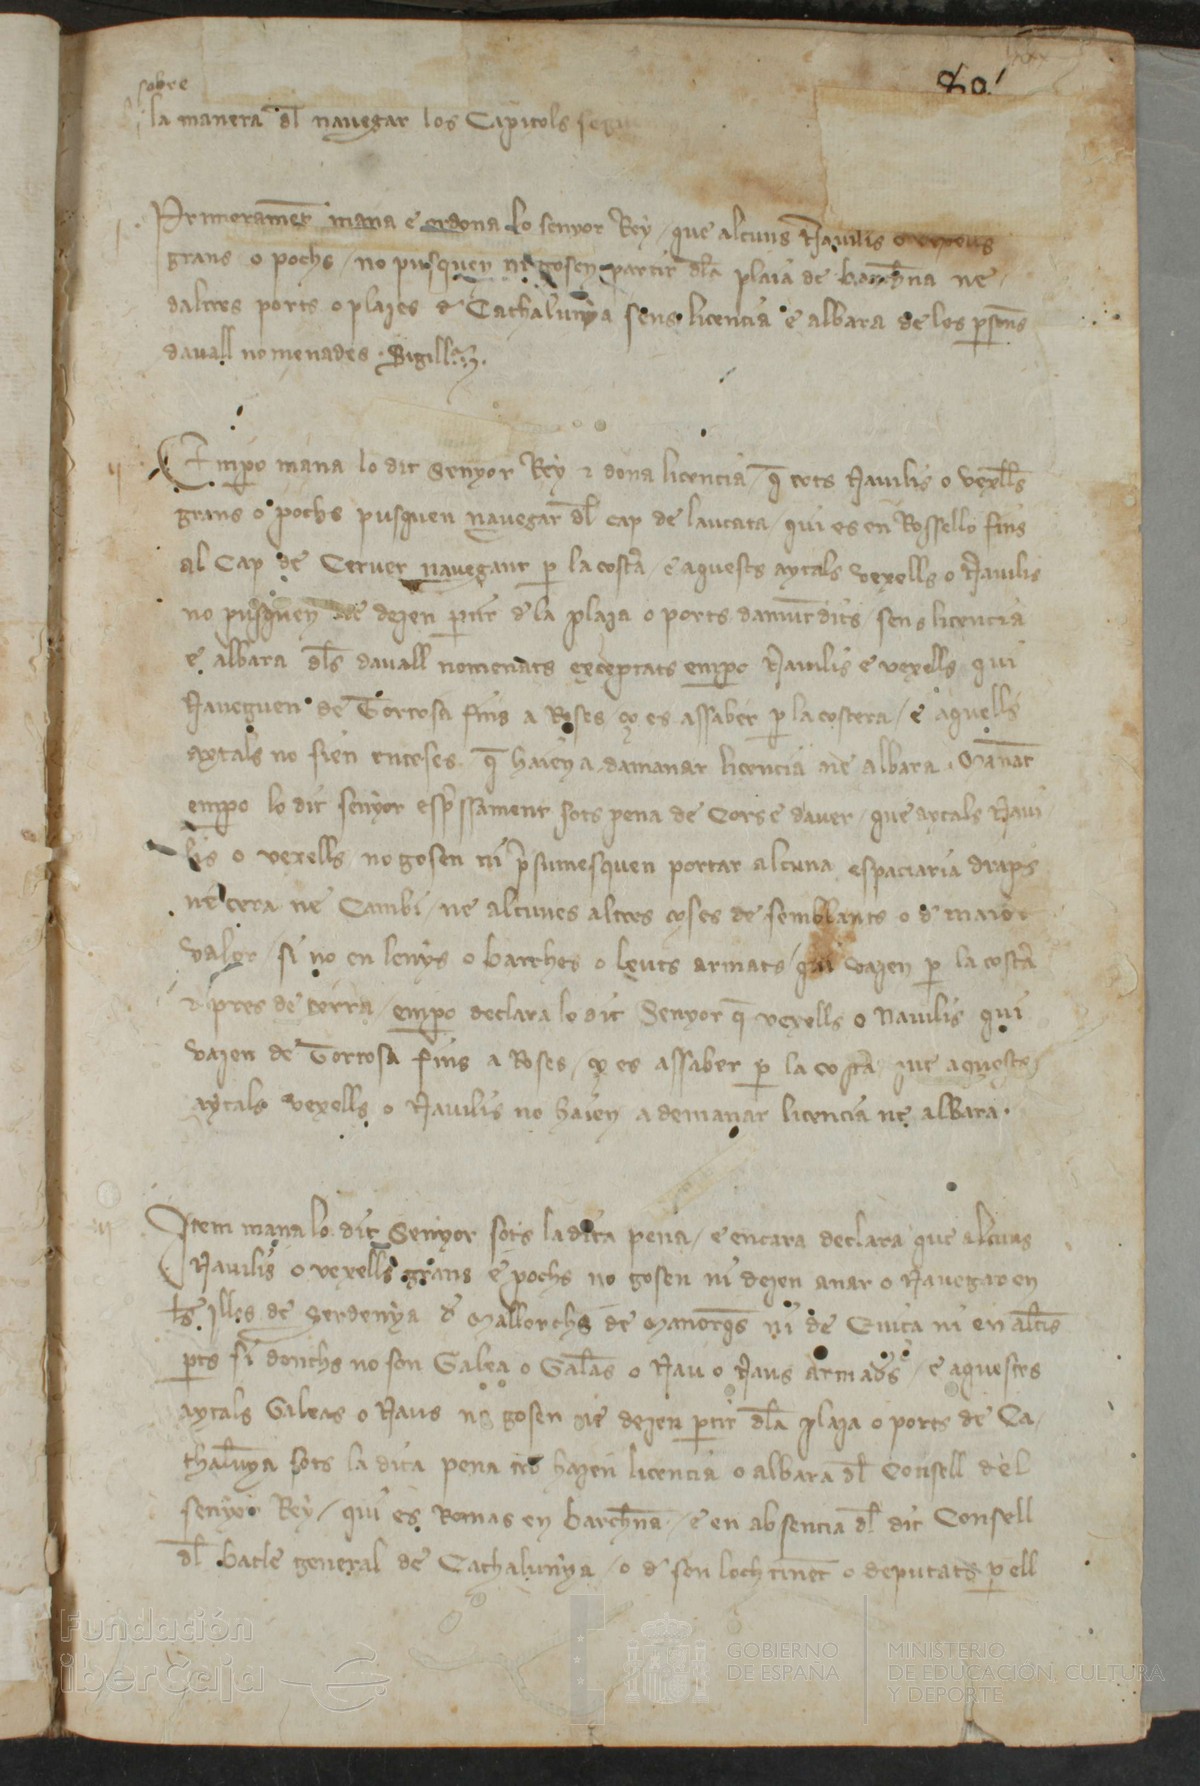 80
sobre
la manera dl nauegar los Capitols
Primerament mana e ordona lo senyor Rey / que alcuns Nauilis o vexells
grans o pochs / no pusquen ni gosen partir dla plaia de barchna ne
daltres ports o plajes d Cathalunya sens licencia e albara de les psones
dauall nomenades .
ii
Empo mana lo dit Senyor Rey & dona licencia / q tots Nauilis o vexells
grans o pochs pusquen nauegar dl cap de laucata / qui es en Rossello fins
al Cap de Cerver nauegant p la costa / e aquests aytals vexells o Nauilis
no pusquen ne dejen ptir d la plaja o ports damuntdits / sens licencia
e albara dls dauall nomenats exceptats empo Nauilis e vexells qui
Naueguen de Tortosa fins a Roses ço es assaber p la costera / e aquells
aytals no sien enteses q haien a damanar licencia ne albara . Manat
empo lo dit senyor espssament sots pena de Cors e dauer / que aytals Naui
lis o vexells no gosen ni psumesquen portar alcuna espaciaria draps
ne cera ne Cambi / ne alcunes altres coses de semblants o d maior
valor / si no en lenys o barches o leuts armats / qui vajen p la costa
& pres de terra / empo declara lo dit Senyor q vexells o Nauilis qui
vajen de Tortosa fins a Roses / ço es assaber p la costa que aquests
aytals vexells o Nauilis no haien a demanar licencia ne albara .
iii
Item mana lo dit Senyor sots la dita pena / e encara declara que alcuns
Nauilis o vexells grans e pochs no gosen ni dejen anar o Nauegar en
les Illes de Serdenya d Mallorchs de Manorqs ni de Euiça ni en altres
pts si donchs no son Galea o Galeas o Nau o Naus armads / e aquestes
aytals Galeas o Naus no gosen ne dejen ptir dla plaja o ports de Ca
thalunya sots la dita pena tro hajen licencia o albara dl Consell del
senyor Rey / qui es Romas en barchna / e en absencia dl dit Consell
dl batle general de Cathalunya / o d son lochtinent o deputats p ell
Fundación
iberCaja
GOBIERNO
DE ESPAÑA
MINISTERIO
DE EDUCACIÓN, CULTURA
Y DEPORTE